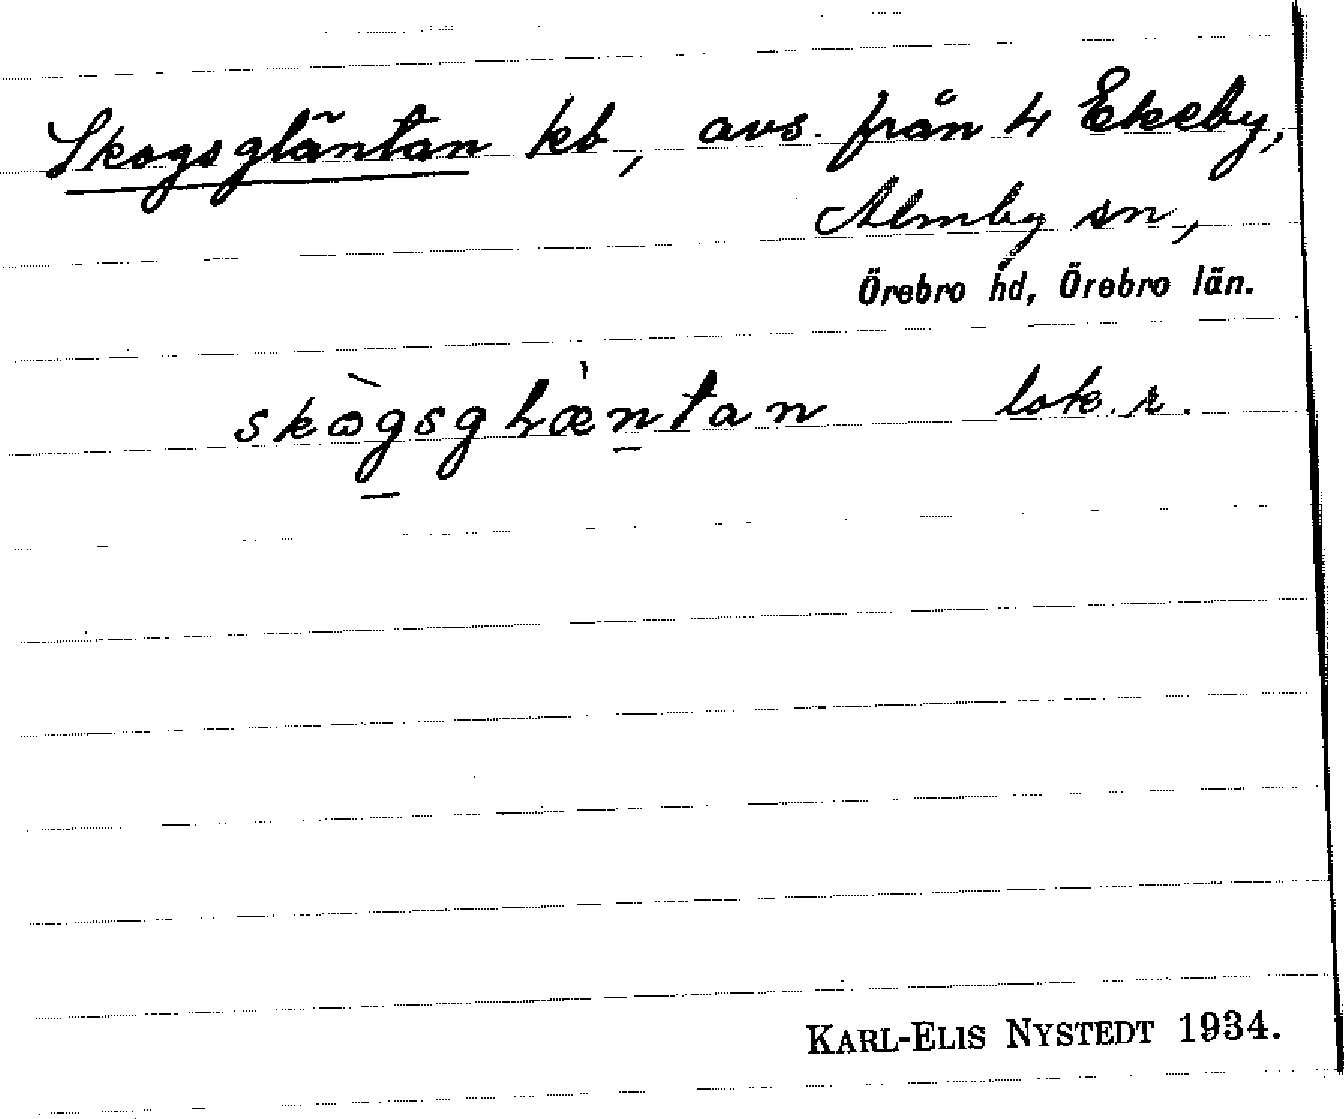 Skogsgläntan kb, avs. från 4 Ekeby,
Almby sn,
Örebro hd, Örebro län.
skògsgLæ̀ntan lok. r.
KARL-ELIS NYSTEDT 1934.